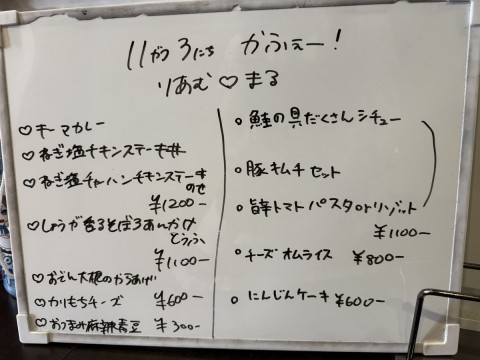 11がつ3にち かふぇー!
りあむ♡まる
♡キーマカレー
♡ねぎ塩チキンステーキ丼
♡ねぎ塩チャーハンチキンステーキ
のせ
¥1200-
♡しょうが香るそぼろあんかけ
とうふ
¥1100-
♡おでん大根のからあげ
♡かりもちチーズ ¥600-
♡おつまみ麻辣青豆 ¥300-
○鮭の具だくさんシチュー
○豚キムチセット
○旨辛トマトパスタorリゾット
¥1100-
○チーズオムライス ¥800-
○にんじんケーキ ¥600-